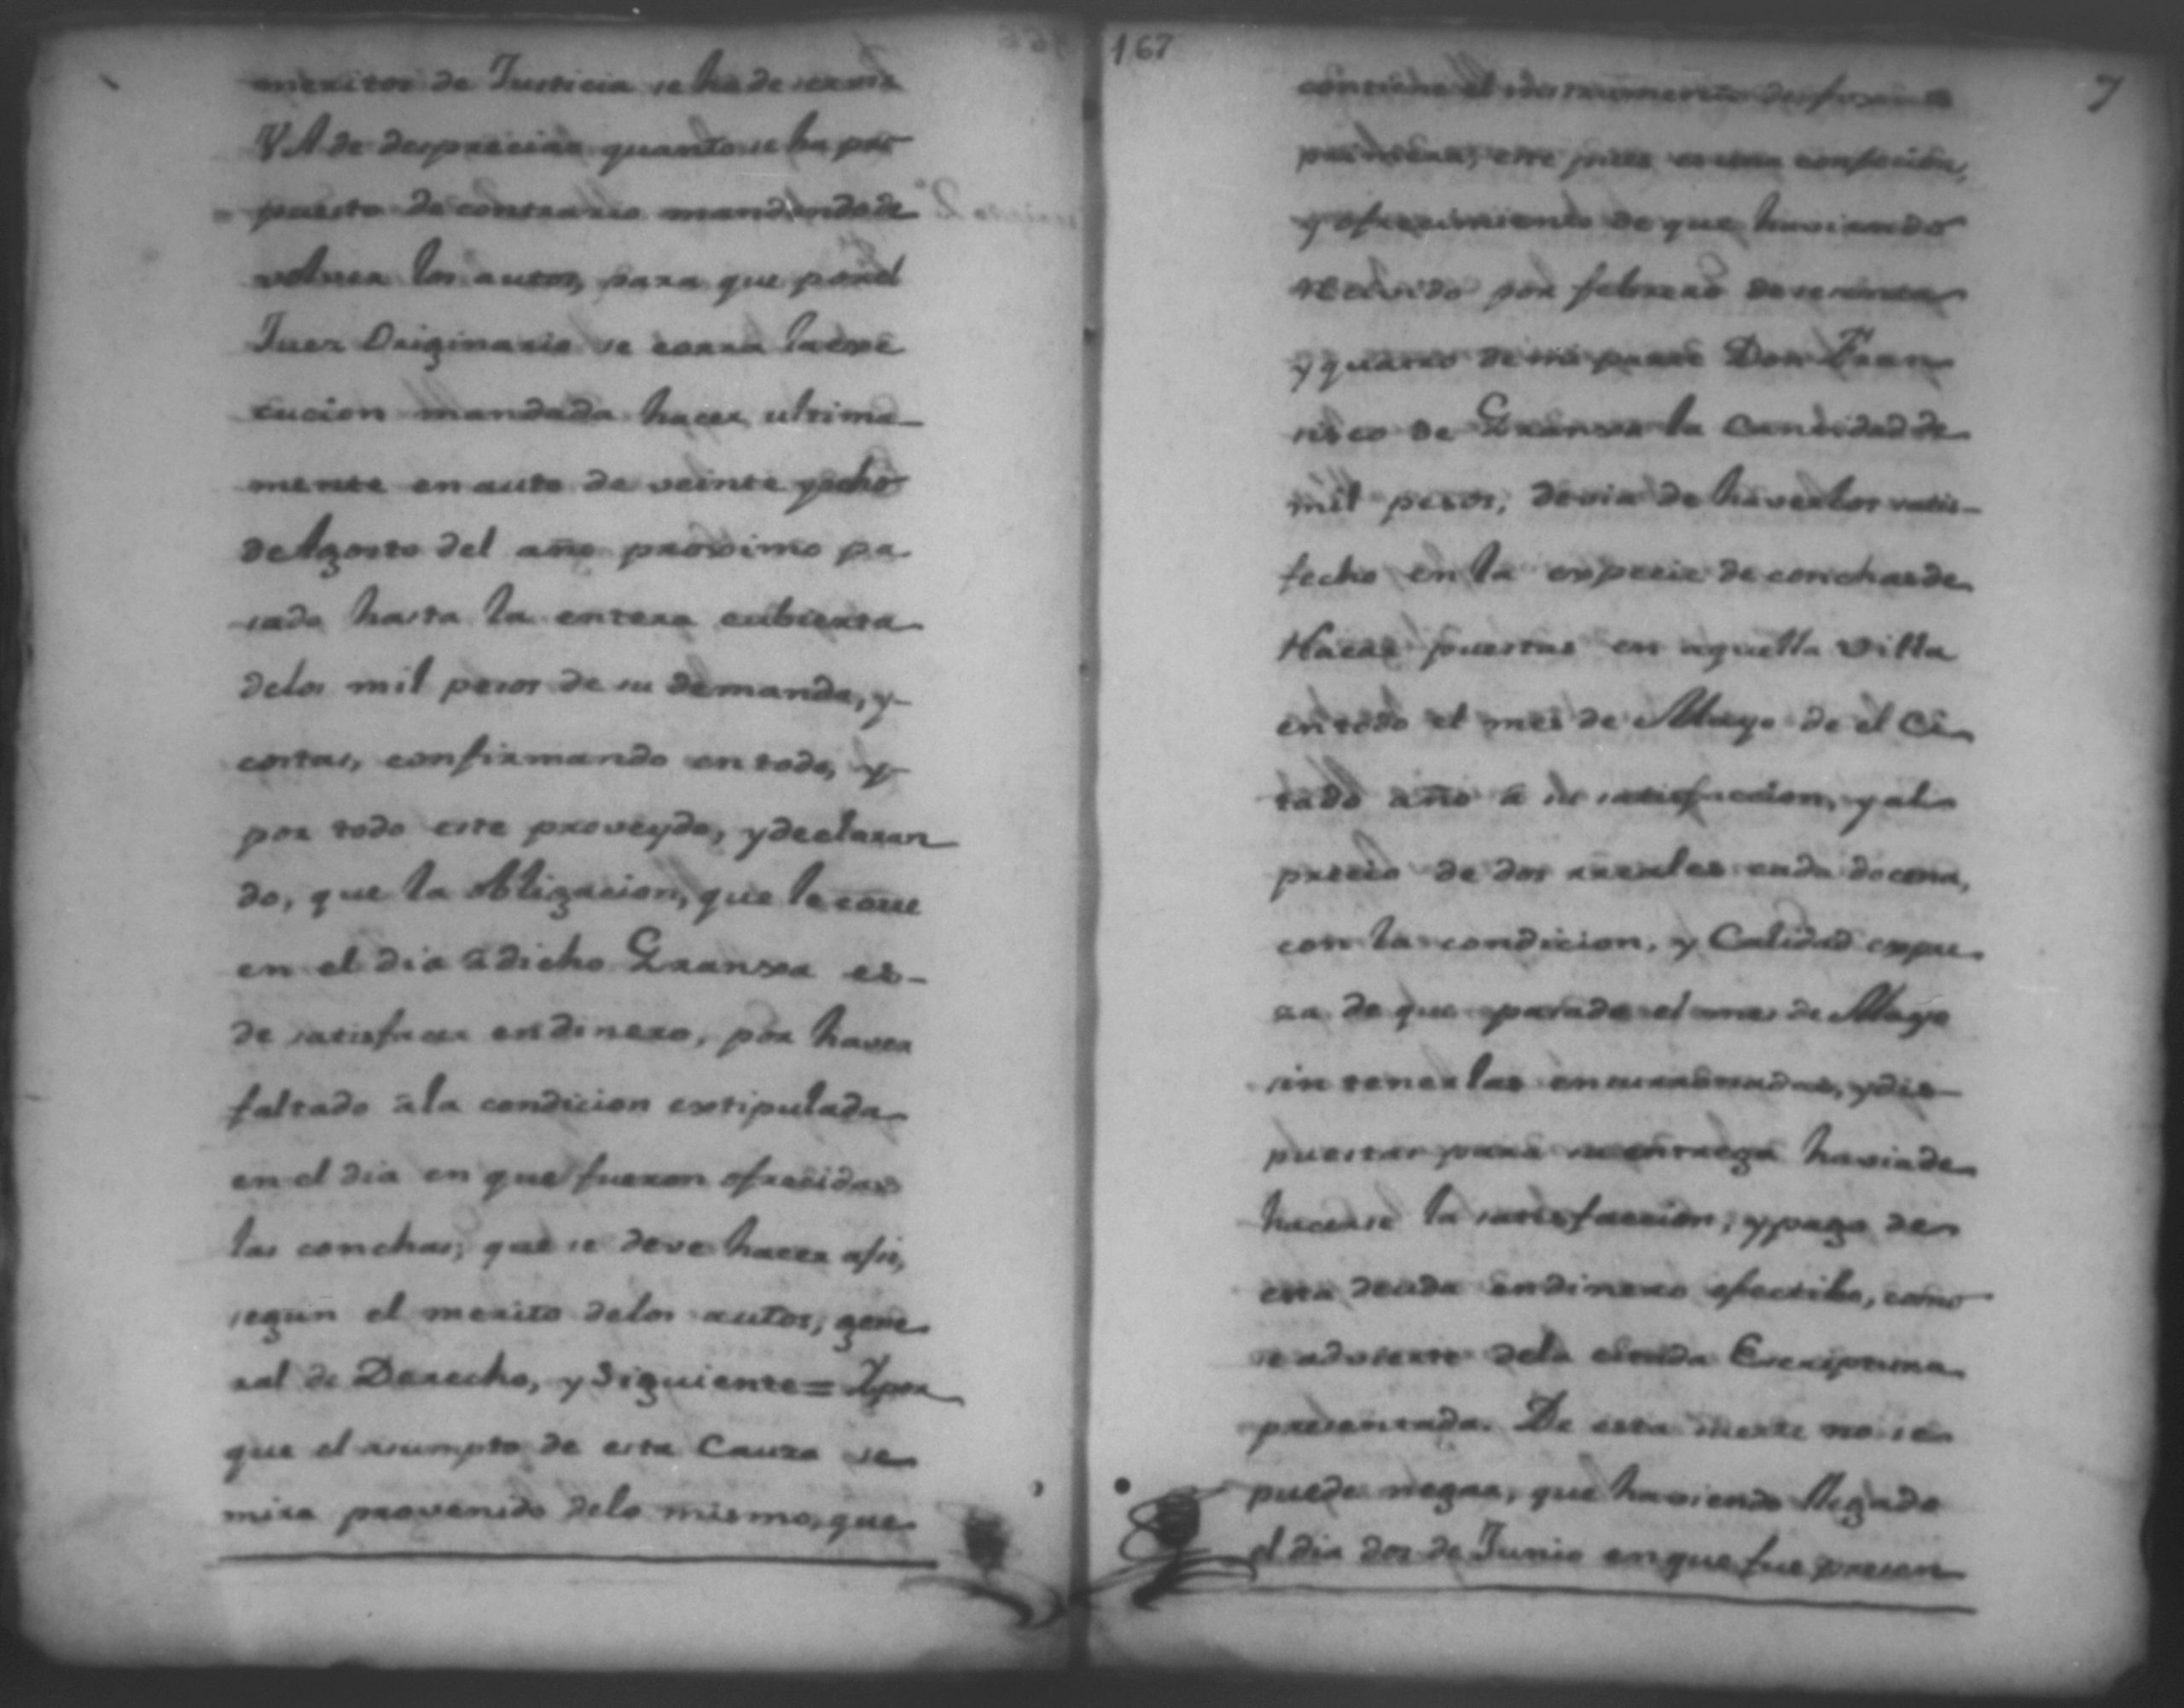 meritos de Justicia se ha de servir
VA de despreciar quanto se ha pro
puesto de contrario mandando de
volver los autos, para que por el
Juez Originario se corra la exe
cucion mandada hacer ultima-
mente en auto de veinte y ocho
de Agosto del año proximo pa
sado hasta la entera cubierta
delos mil pesos de su demanda, y
costas, confirmando en todo, y
por todo este proveydo, y declaran
do, que la obligacion, que le corre
en el dia à dicho Granssa es-
de satisfacer en dinero, por haver
faltado àla condicion extipulada
en el dia en que fueron ofrecidas
las conchas; que se deve hacer assi,
segun el merito delos autos, gene
ral de Derecho, y Siguiente= Ypor
que el asumpto de esta Cauza se
mira provenido delo mismo, que
167
7
contiene el instrumento de foxas
primera, este pues es una confecion,
y ofrecimiento de que haviendo
recivido por febrero de sesenta
y quatro de mi parte Don Fran
sisco de Granssa la Cantidad de
mil pesos, devia de haverlos satis-
fecho en la especie de conchas de
Nacar puestas en aquella Villa
en todo el mes de Mayo de el Ci
tado año à su satisfaccion, y al
precio de dos rreales cada docena,
con la condicion, y Calidad expre
sa de que pasado el mes de Mayo
sin tenerlas enzurronadas, y dis-
puestas para su entrega havia de
hacerse la satisfaccion, y pago de
esta deuda en dinero efectibo, como
se advierte dela citada Escriptura
presentada. De esta suerte no se
puede negar, que haviendo llegado
el dia dos de Junio en que fue presen